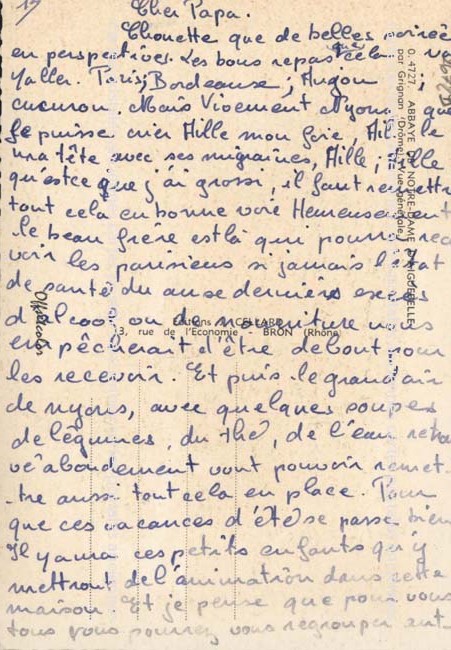 19
Cher Papa.
Chouette que de belles soirée
en perspectives. Les bons repas que cela va
y aller. Paris; Bordeause; Avgon ;
cucuron. Mais Vivement Nyons que
Je puisse crier Mille mon foie, Mille
ma tête avec ses migraines, Mille; Mille
qu'estce que j'ai grossi, il faut remettre
tout cela en bonne voie Heureusement
le beau frère est là qui pourra rece
voir les parisiens si jamais l'état
de santé du aux derniers exces
d'alcool ou de nourriture vous
empêcherait d'être debout pour
les recevoir. Et puis le grand air
de nyons, avec quelques soupes
de légumes, du thé, de l'eau
abondement vont pouvoir remet-
tre aussi tout cela en place. Pour
que ces vacances d'été se passe bien
Il y aura ces petits enfants qu'y
mettront de l'animation dans cette
maison. Et je pense que pour vous
tous vous pourrez vous regrouper aut-
D. 4727. ABBAYE DE NOTRE-DAME D'AIGUEBELLE
par Grignan (Drôme) Vue générale
Offsetcolor
Editions CELLARD
3, rue de l'Economie - BRON (Rhône)